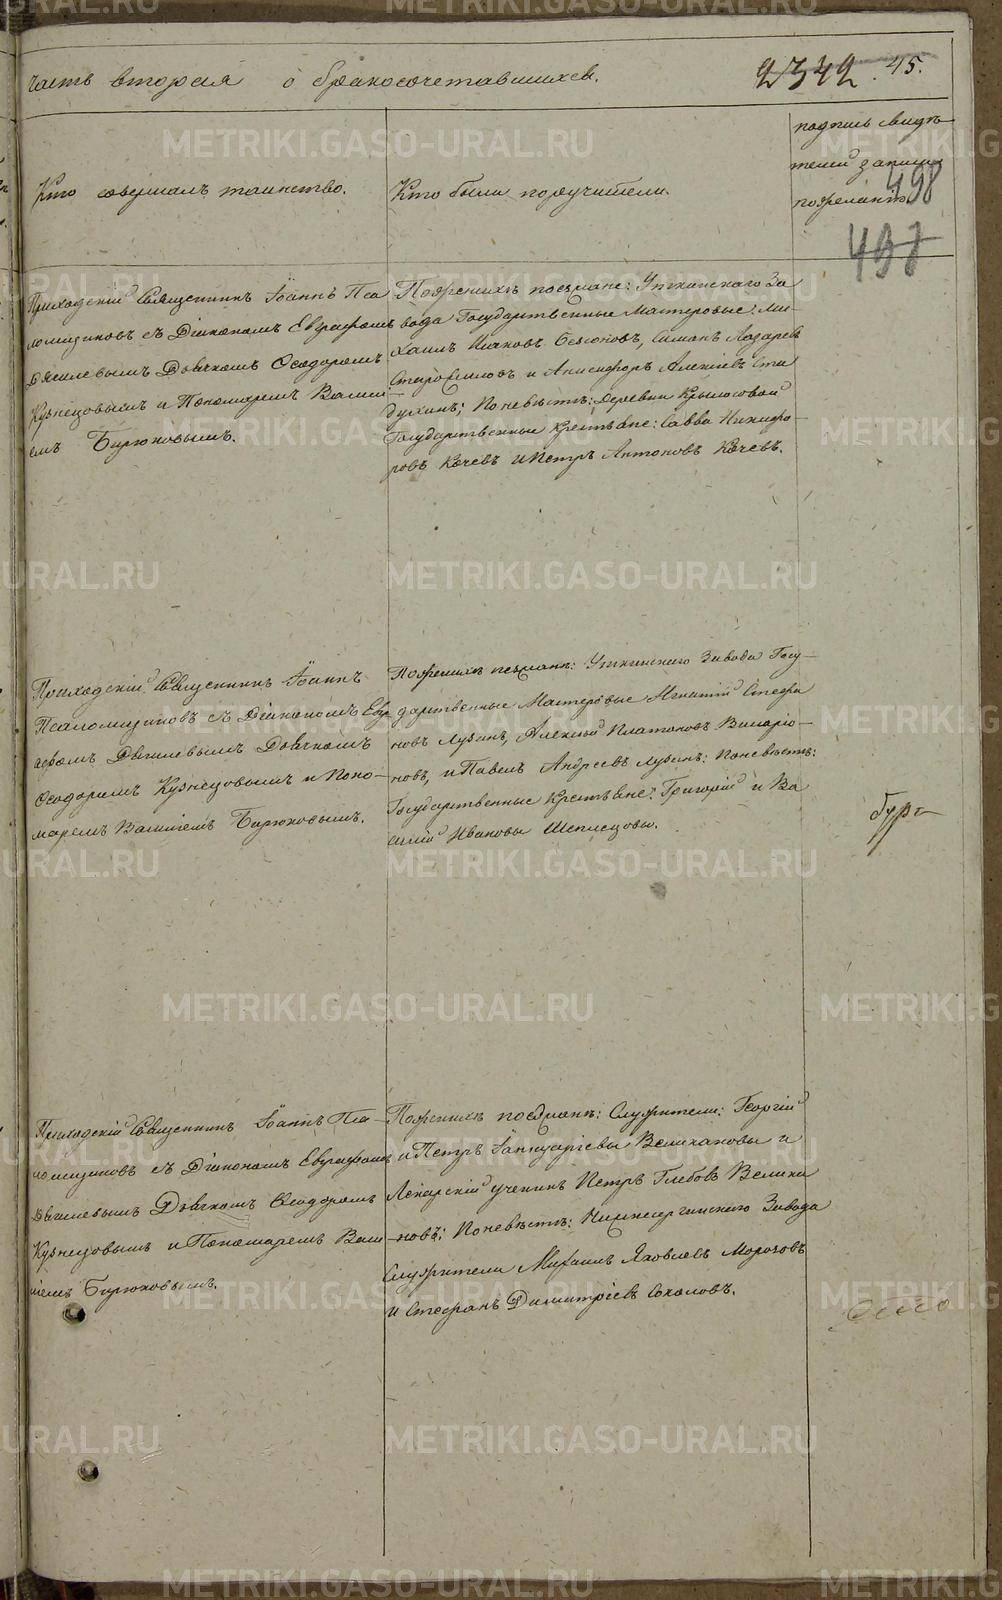 часть вторая о бракосочетавшихся.
2342 45.
Кто совершалъ таинство.
Кто были поручители.
подпись свидѣ-
телей записи
по желанію
498
497
Приходскій Священникъ Іоаннъ Пса
ломщиковъ съ Діакономъ Евграфомъ
Дягилевымъ Дьячкомъ Ѳеодоромъ
Кузнецовымъ и Пономаремъ Васили-
емъ Бирюковымъ.
По женихѣ поезжане: Уткинскаго За
вода Государственные Мастеровые: Ми-
хаилъ Исаковъ Симанъ Лазаревъ
и Анисифоръ Алексѣевъ
По невѣстѣ: деревни Крылосовой
Государственные Крестьяне: Савва Никифо
ровъ Кочевъ и Петръ Антоновъ Кочевъ.
Приходскій Священникъ Іоаннъ
Псаломщиковъ съ Діакономъ Евг
рафомъ Дягилевымъ Дьячкомъ
Ѳеодоромъ Кузнецовымъ и Поно-
маремъ Василіемъ Бирюковымъ.
По женихѣ поезжане: Уткинскаго Завода Госу-
дарственные Мастеровые Игнатій Стефа
новъ Лузинъ, Алексѣй Платоновъ Иларіо-
новъ, и Павелъ Андреевъ Лузинъ: По невѣстѣ:
Государственные Крестьяне: Григорій и Ва
силій Ивановы Шепысцовы.
Приходскій Священникъ Іоаннъ Пса-
ломщиковъ съ Діакономъ Евграфомъ
Дягилевымъ Дьячкомъ Ѳеодоромъ
Кузнецовымъ и Пономаремъ Васи
ліемъ Бирюковымъ.
По женихѣ поезжане: Служители: Георгій
и Петръ Іаннуаріевы Великановы и
Лекарскій ученикъ Петръ Глебовъ Велика
новъ; По невѣстѣ: Нижнесергинскаго Завода
Служители Михаилъ Яковлевъ Морозовъ
и Стефанъ Димитріевъ Соколовъ.
METRIKI.GASO-URAL.RU